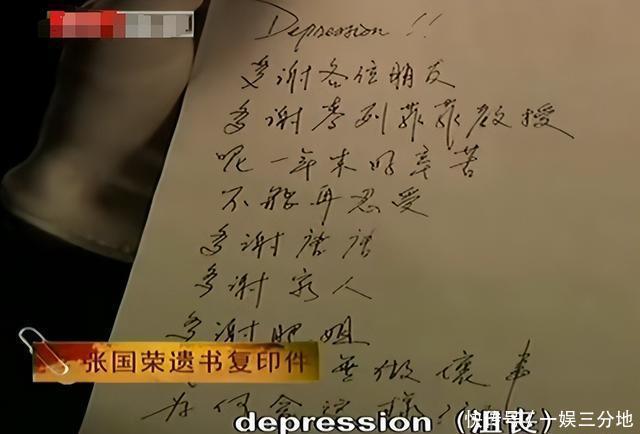 Depression !!
多谢各位朋友
多谢麦列菲菲教授
呢一年来好辛苦
不能再忍受
多谢唐唐
多谢家人
多谢肥姐
张国荣遗书复印件
無做壞事
为何会
depression (沮丧)
快传号/一娱三分地